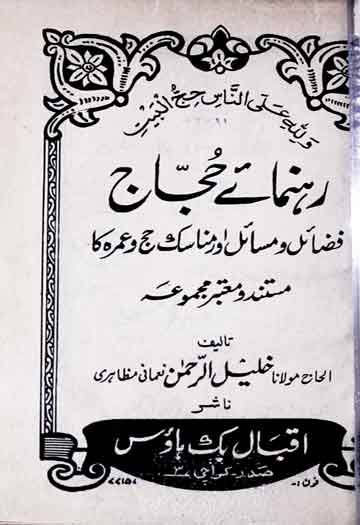 وَلِلّٰهِ عَلَی النَّاسِ حِجُّ الْبَيْتِ
رہنمائے حُجّاج
فضائل و مسائل اور مناسک حج و عمرہ کا
مستند و معتبر مجموعہ
تالیف
الحاج مولانا خلیل الرحمٰن نعمانی مظاہری
ناشر
اقبال بک ہاؤس
صدر - کراچی ۳
فون :-